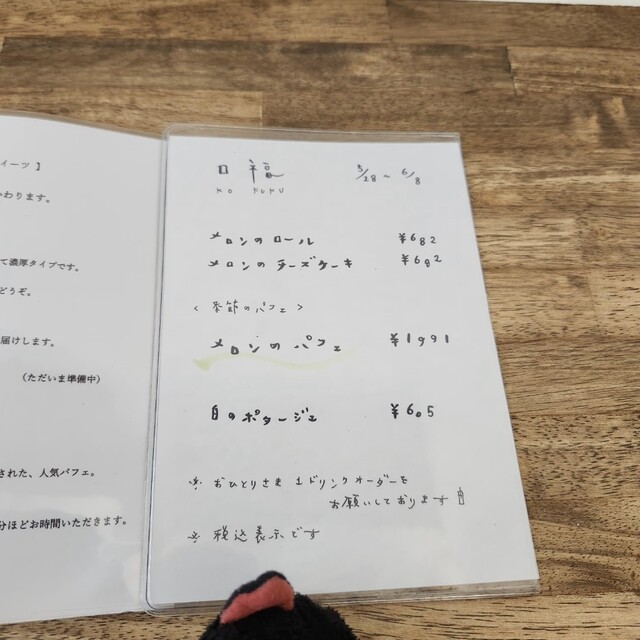 イーツ 】
わります。
て濃厚タイプです。
どうぞ。
届けします。
(ただいま準備中)
された、人気パフェ。
分ほどお時間いただきます。
口福 5/28 ~ 6/8
KO FUKU
メロンのロール ¥682
メロンのチーズケーキ ¥682
< 季節のパフェ >
メロンのパフェ ¥1991
白のポタージュ ¥605
※ おひとりさま 1ドリンクオーダーを
お願いしております
※ 税込表示です